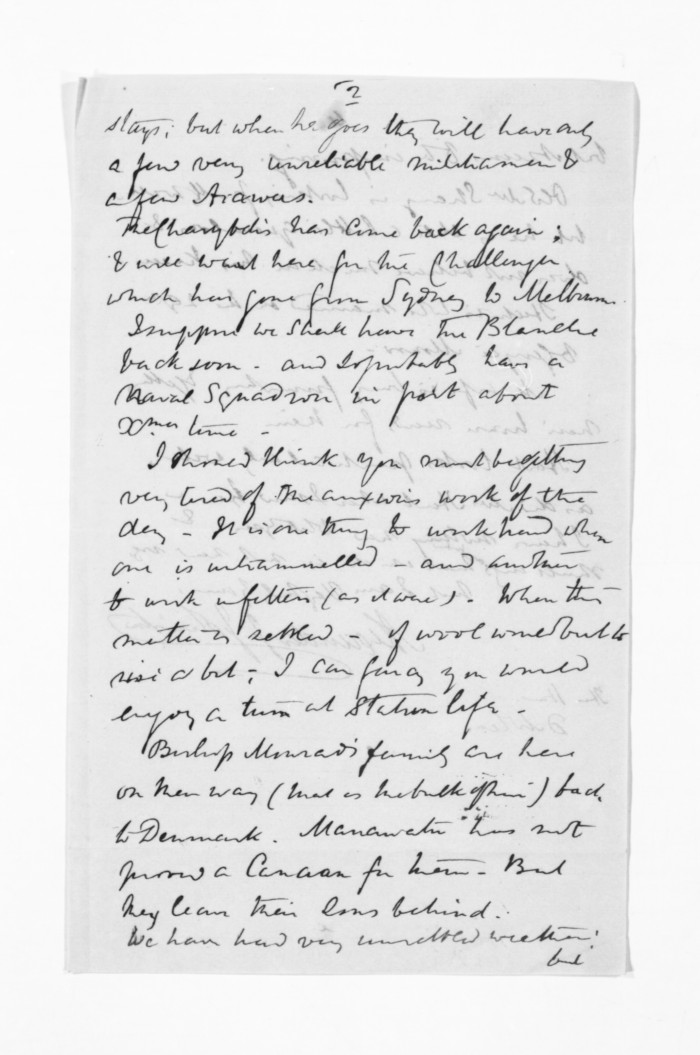 2
stays; but when he goes they will have only
a few very unreliable militiamen &
a few Arawas.
The Charybdis has come back again;
& will wait here for the Challenger
which has gone from Sydney to Melbourne.
I suppose we shall have the Blanche
back soon - and so probably have a
Naval Squadron in port about
Xmas time -
I should think you must be getting
very tired of the anxious work of the
day - It is one thing to work hard when
one is untrammelled - and another
to work in fetters (as it were). When this
matter is settled - if wool would but to
rise a bit - I can fancy you would
enjoy a turn at Station life -
Bishop Monrad's family are here
on their way (that is the bulk of them) back
to Denmark. Manawatu has not
proved a Canaan for them - But
they leave their Sons behind.
We have had very unsettled weather;
but